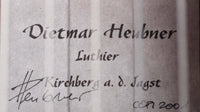 Dietmar Heubner
Luthier
Kirchberg a. d. Jagst
Heubner